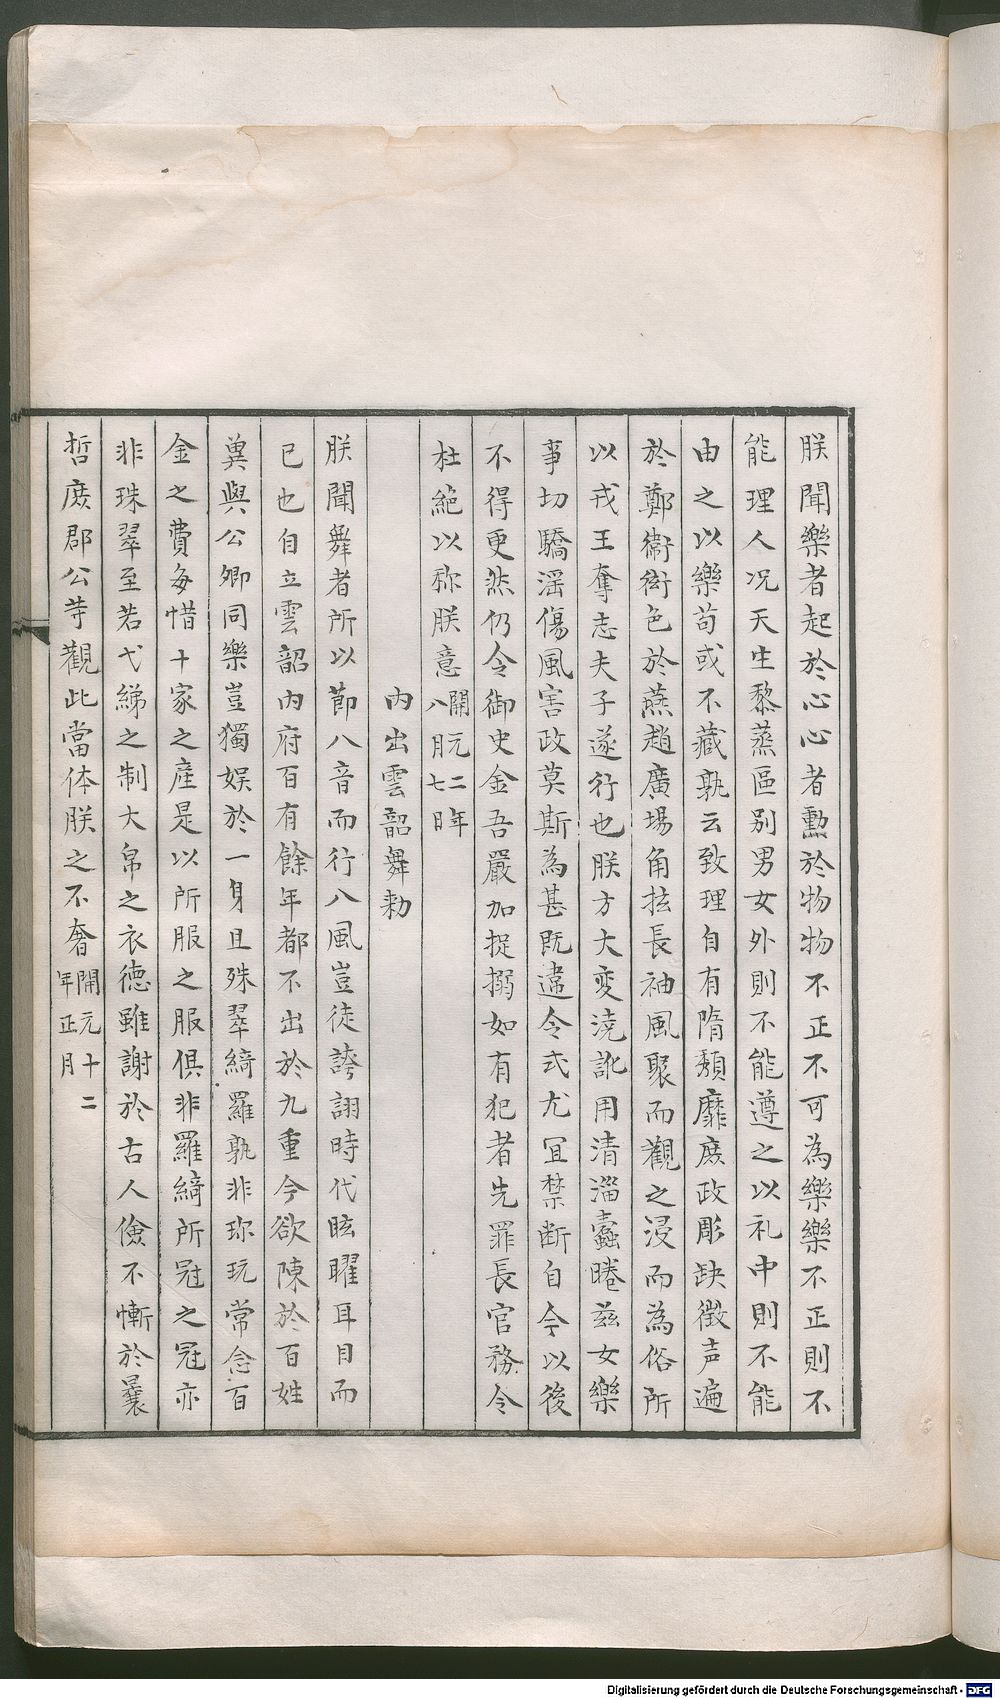 朕聞樂者起於心心者動於物物不正不可為樂樂不正則不
能理人况天生黎蒸區別男女外則不能遵之以礼中則不能
由之以樂苟或不藏孰云致理自有隋頹靡庶政彫缺徵声遍
於鄭衞衒色於燕趙廣場角抎長袖風聚而觀之浸而為俗所
以戎王奪志夫子遂行也朕方大変澆訛用清淄蠹睠兹女樂
事切驕滛傷風害政莫斯為甚旣違令式尤冝禁断自今以後
不得更然仍令御史金吾嚴加捉搦如有犯者先罪長官務令
杜絶以称朕意開元二年八月七日
內出雲韶舞勑
朕聞舞者所以節八音而行八風豈徒誇詡時代眩曜耳目而
已也自立雲韶內府百有餘年都不出於九重今欲陳於百姓
兾與公卿同樂豈獨娯於一身且殊翠綺羅孰非珎玩常念百
金之費每惜十家之產是以所服之服俱非羅綺所冠之冠亦
非珠翠至若弋綈之制大帛之衣德雖謝於古人儉不慚於曩
哲庶郡公䓁觀此當体朕之不奢開元十二年正月
Digitalisierung gefördert durch die Deutsche Forschungsgemeinschaft - DFG